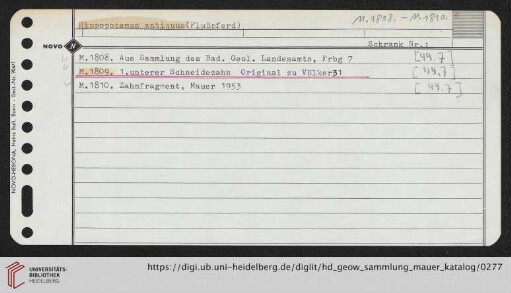 Hippopotamus antiquus(Flußpferd)
M.1808. - M.1810.
Schrank Nr.:
NOVO N
M.1808. Aus Sammlung des Bad. Geol. Landesamts, Frbg ? [49.7]
M.1809. 1.unterer Schneidezahn Original zu Völker31 [49.7]
M.1810. Zahnfragment, Mauer 1953 [49.7]
UNIVERSITÄTS-
BIBLIOTHEK
HEIDELBERG
https://digi.ub.uni-heidelberg.de/diglit/hd_geow_sammlung_mauer_katalog/0277